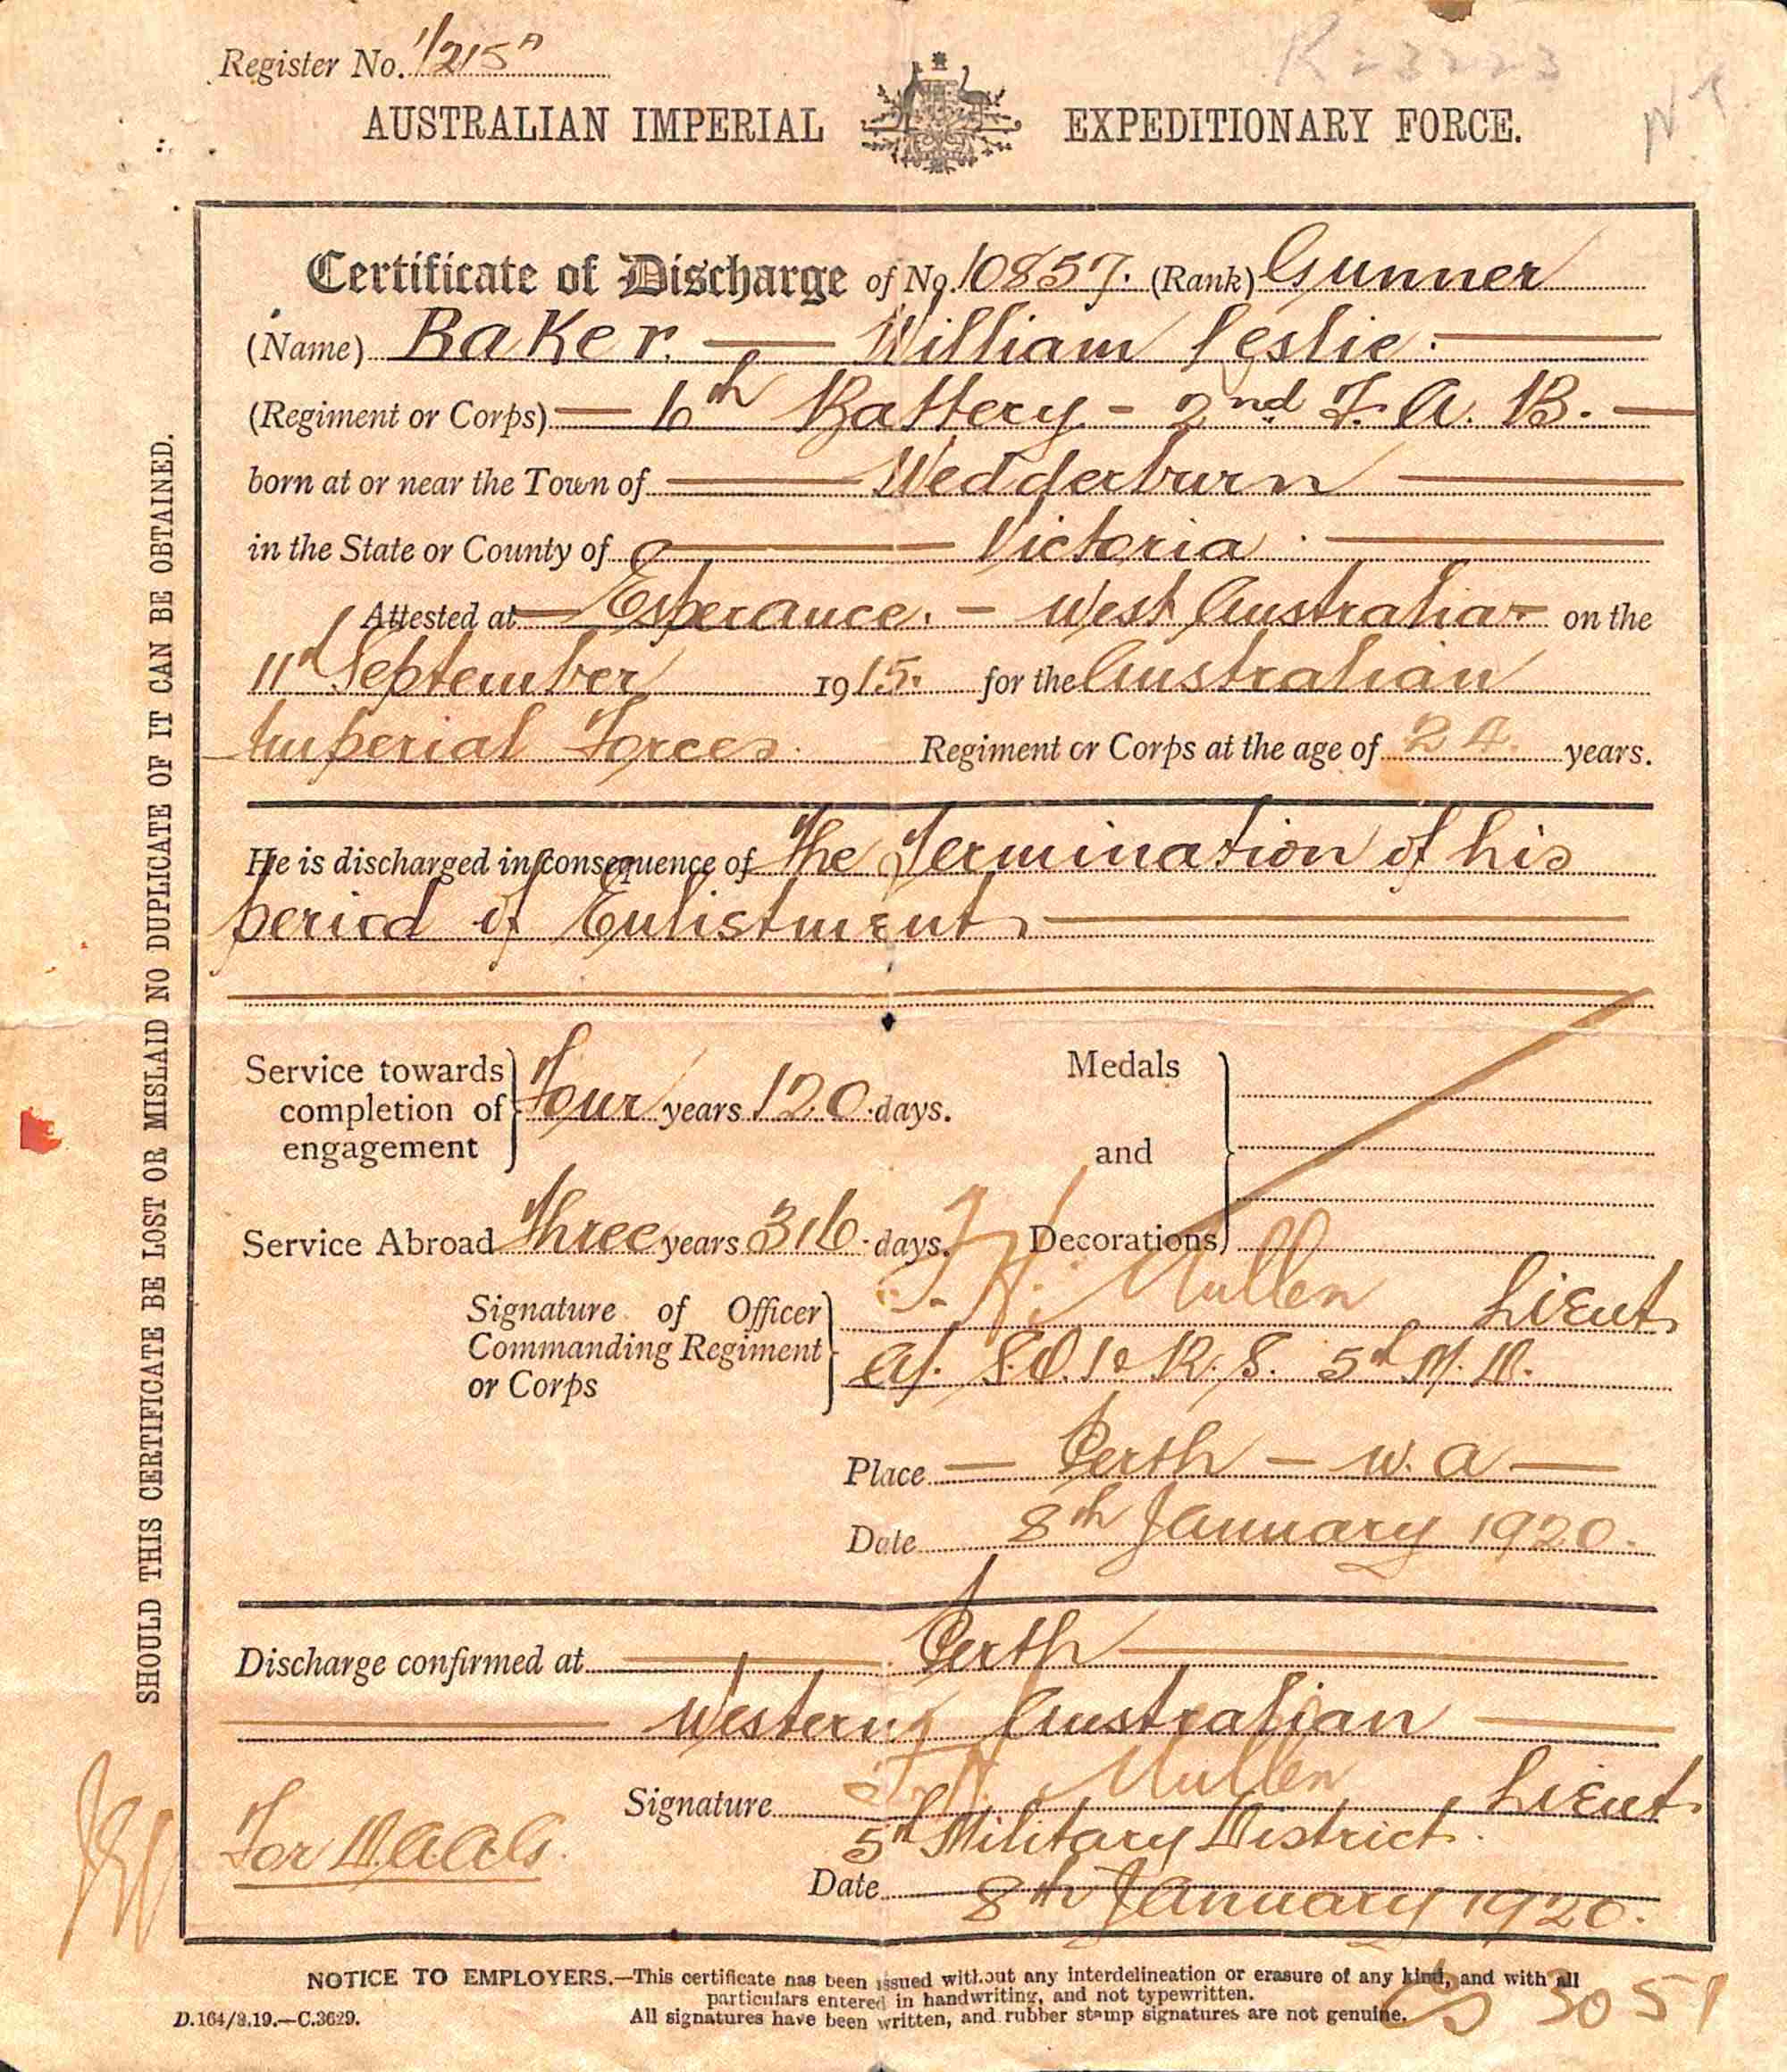 Register No. 1/215A
R23223
AUSTRALIAN IMPERIAL EXPEDITIONARY FORCE.
Certificate of Discharge of No. 10857. (Rank) Gunner
(Name) Baker. — William Leslie.
(Regiment or Corps) — 6th Battery - 2nd F. A. B. —
born at or near the Town of — Wedderburn —
in the State or County of — Victoria. —
Attested at — Esperance. - West Australia - on the
11th September 1915. for the Australian
Imperial Forces. Regiment or Corps at the age of 24. years.
He is discharged in consequence of The Termination of his
period of Enlistment
Service towards completion of engagement } Four years 120 days.
Service Abroad Three years 316 days.
Medals and Decorations }
Signature of Officer Commanding Regiment or Corps } Mullen Lieut
5th M. D.
Place — Perth - W. A —
Date 8th January 1920.
Discharge confirmed at Perth
Western Australian
Signature Mullen Lieut
5th Military District.
For
Date 8th January 1920.
SHOULD THIS CERTIFICATE BE LOST OR MISLAID NO DUPLICATE OF IT CAN BE OBTAINED.
NOTICE TO EMPLOYERS.—This certificate has been issued without any interdelineation or erasure of any kind, and with all
particulars entered in handwriting, and not typewritten.
D.164/3.19.—C.3629. All signatures have been written, and rubber stamp signatures are not genuine.
3051